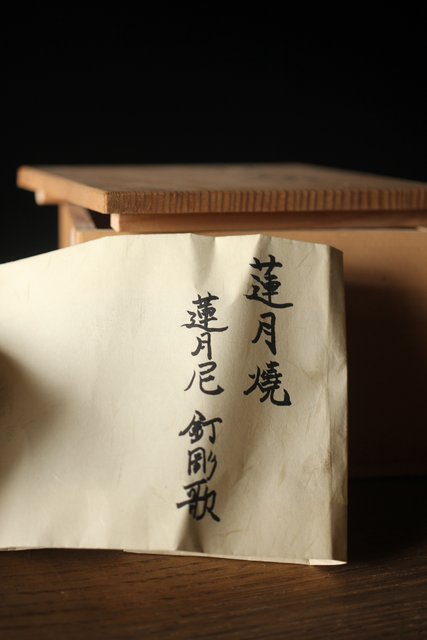 蓮月燒
蓮月尼 釘彫歌